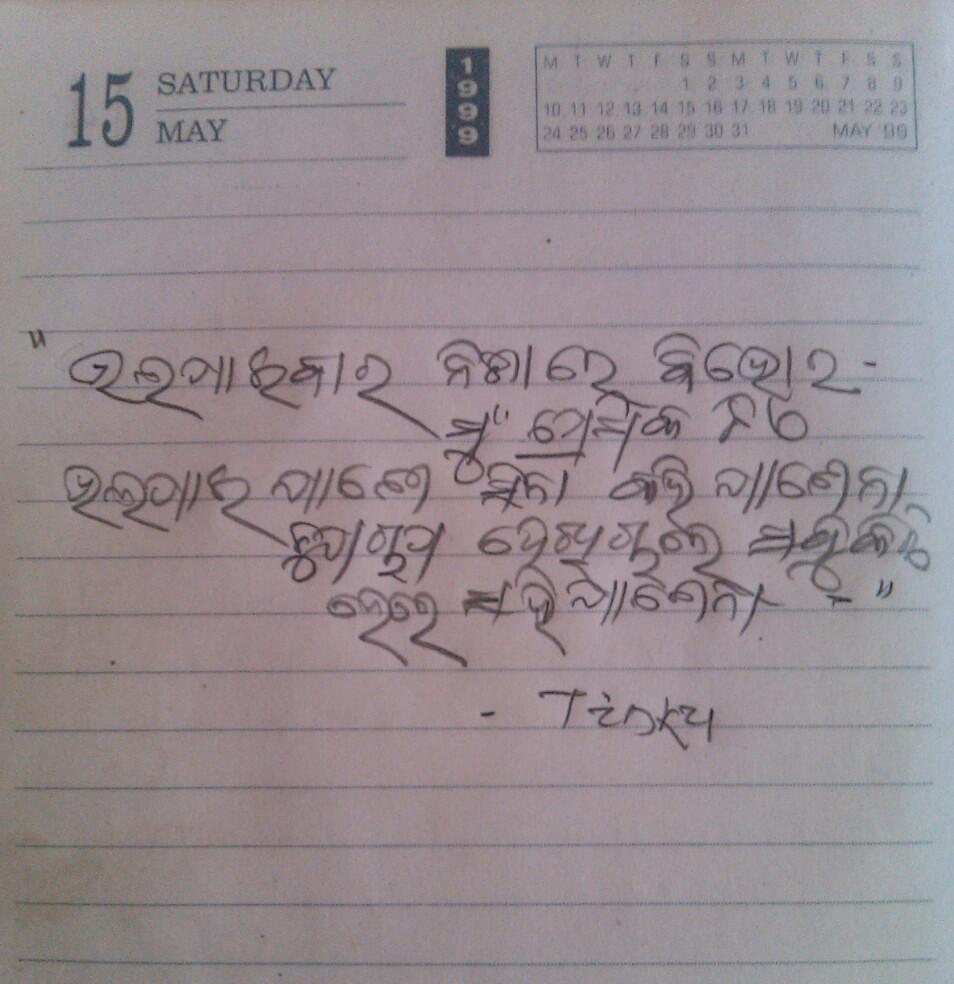 15 SATURDAY
MAY
1999
M T W T F S S M T W T F S S
1 2 3 4 5 6 7 8 9
10 11 12 13 14 15 16 17 18 19 20 21 22 23
24 25 26 27 28 29 30 31 MAY '99
"ଭଲପାଇବାର ନିଶାରେ ବିଭୋର -
ମୁଁ ପ୍ରେମିକ
ଭଲପାଇ ଜାଣେ ଜାଣେନା
ହେରେ ଜାଣେନା - "
- Tinku